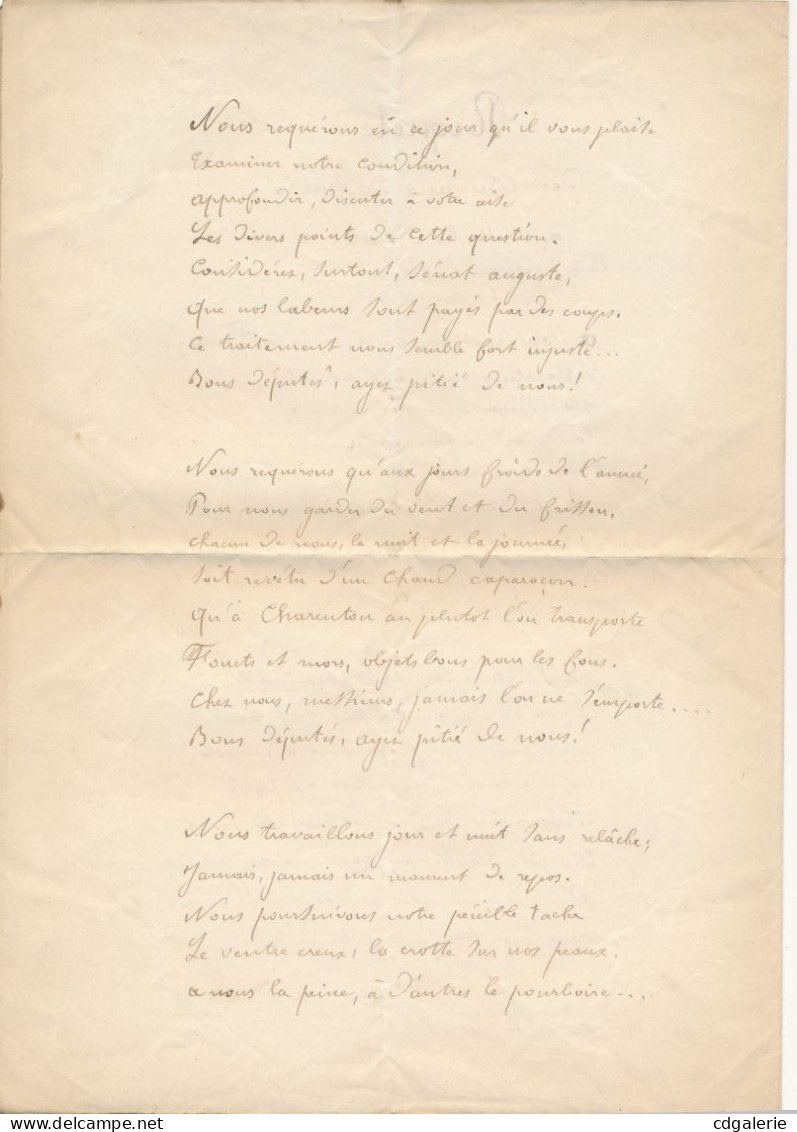 Nous requérons en ce jour qu'il vous plaise
Examiner notre condition,
approfondir, discuter à votre aise
Les divers points de cette question.
Considérez, surtout, sénat auguste,
Que nos labeurs sont payés par des coups.
Ce traitement nous semble fort injuste...
Bons députés, ayez pitié de nous!
Nous requérons qu'aux jours froids de l'année,
Pour nous garder du vent et du frisson,
chacun de nous, la nuit et la journée,
soit revêtu d'un chaud caparaçon.
Qu'à Charenton au plutot l'on transporte
Fouets et mors, objets bons pour les fous.
Chez nous, messieurs, jamais l'on ne s'emporte....
Bons députés, ayez pitié de nous!
Nous travaillons jour et nuit sans relâche;
Jamais, jamais un moment de repos.
Nous poursuivons notre pénible tache
Le ventre creux, la crotte sur nos peaux.
a nous la peine, à d'autres le pourboire....
cdgalerie